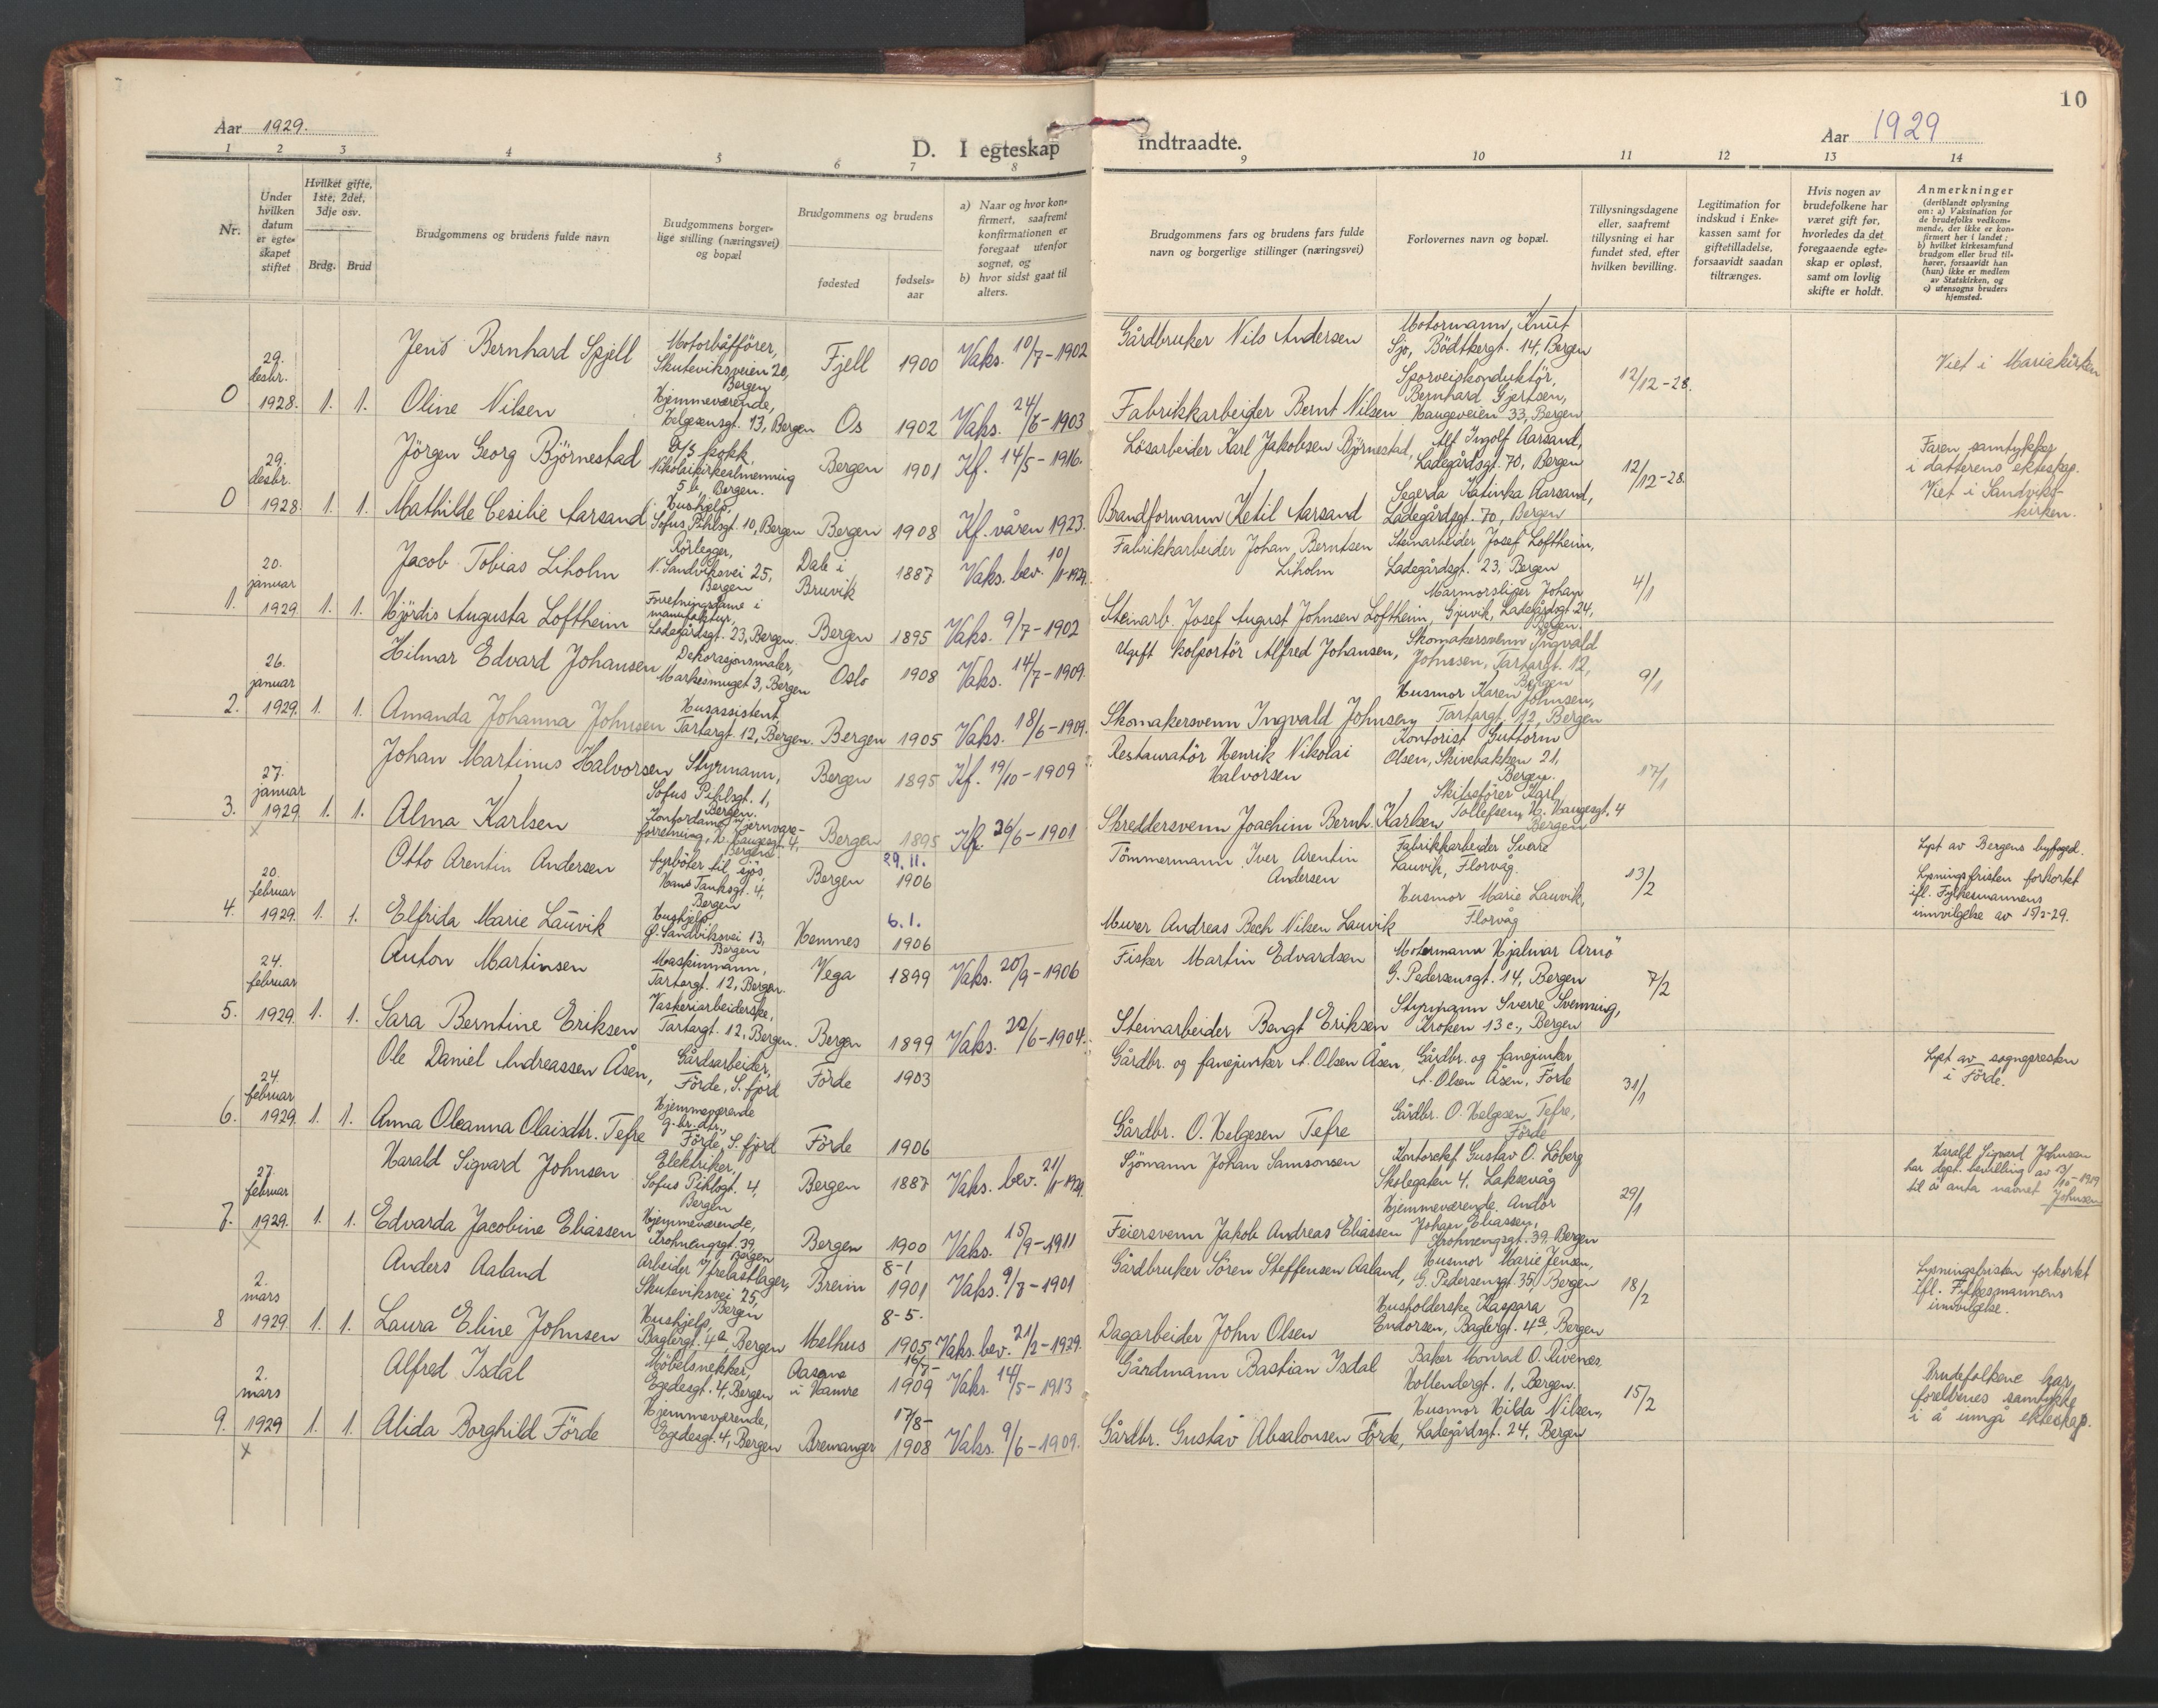 10
Aar 1929.
D. I egteskap indtraadte.
Aar 1929
1 2 3 4 5 6 7 8 9 10 11 12 13 14
Nr.
Under hvilken datum er egteskapet stiftet
Hvilket gifte, 1ste, 2det, 3dje osv.
Brdg. Brud
Brudgommens og brudens fulde navn
Brudgommens borgerlige stilling (næringsvei) og bopæl
Brudgommens og brudens
fødested
fødselsaar
a) Naar og hvor konfirmert, saafremt konfirmationen er foregaat utenfor sognet, og
b) hvor sidst gaat til alters.
Brudgommens fars og brudens fars fulde navn og borgerlige stillinger (næringsvei)
Forlovernes navn og bopæl.
Tillysningsdagene eller, saafremt tillysning ei har fundet sted, efter hvilken bevilling.
Legitimation for indskud i Enkekassen samt for giftetilladelse, forsaavidt saadan tiltrænges.
Hvis nogen av brudefolkene har været gift før, hvorledes da det foregaaende egteskap er opløst, samt om lovlig skifte er holdt.
Anmerkninger
(deriblandt oplysning om: a) Vaksination for de brudefolks vedkommende, der ikke er konfirmert her i landet; b) hvilket kirkesamfund brudgom eller brud tilhører, forsaavidt han (hun) ikke er medlem av Statskirken, og c) utensogns bruders hjemsted.
0 29. desbr. 1928. 1. 1.
Jens Bernhard Spjell Motorbåtförer, Skuteviksveien 20, Bergen Fjell 1900 Vaks. 10/7-1902 Gårdbruker Nils Andersen Motormann, Knut Sjo, Bödtkergt. 14, Bergen 12/12-28. Viet i Mariakirken
Oline Nilsen Hjemmeværende, Helgesensgt. 13, Bergen Os 1902 Vaks. 24/6-1903 Fabrikkarbeider Bernt Nilsen Sporveiskonduktör, Bernhard Gjertsen, Haugeveien 33, Bergen
0 29. desbr. 1928 1. 1.
Jörgen Georg Björnestad D/S kokk, Nikolaikirkealmenning 5 b, Bergen. Bergen 1901 Kf. 14/5-1916. Lösarbeider Karl Jakobsen Björnestad, Alf Ingolf Aarsand, Ladegårdsgt. 70, Bergen 12/12-28. Faren samtykker i datterens ekteskap. Viet i Sandvikskirken.
Mathilde Cesilie Aarsand Hushjelp, Sofus Pihlsgt. 10, Bergen Bergen 1908 Kf. våren 1923. Brandformann Ketil Aarsand Segerda Katinka Aarsand, Ladegårdsgt. 70, Bergen
1. 20. januar 1929. 1. 1.
Jacob Tobias Liholm Rörlegger, N. Sandviksvei 25, Bergen Dale i Bruvik 1887 Vaks. bev. 10/1-1929. Fabrikkarbeider Johan Berntsen Liholm Steinarbeider Josef Loftheim, Ladegårdsgt. 23, Bergen 4/1
Hjördis Augusta Loftheim Forretningsdame i manufaktur, Ladegårdsgt. 23, Bergen Bergen 1895 Vaks. 9/7-1902 Steinarb. Josef August Johnsen Loftheim, Marmorsliper Johan Gjuvik, Ladegårdsgt. 24, Bergen.
2. 26. januar 1929. 1. 1.
Hilmar Edvard Johansen Dekorasjonsmaler, Markesmuget 3, Bergen Oslo 1908 Vaks. 14/7-1909. Ugift kolportör Alfred Johansen, Skomakersvenn Ingvald Johnsen, Tartargt. 12, Bergen 9/1
Amanda Johanna Johnsen Husassistent, Tartargt. 12, Bergen. Bergen 1905 Vaks. 18/6-1909. Skomakersvenn Ingvald Johnsen, Husmor Karen Johnsen, Tartargt. 12, Bergen
3. 27. januar 1929 1. 1.
x
Johan Martinus Halvorsen Styrmann, Sofus Pihlsgt. 1, Bergen. Bergen 1895 Kf. 19/10-1909 Restauratör Henrik Nikolai Halvorsen Kontorist Guttorm Olsen, Skivebakken 21, Bergen. 17/1
Alma Karlsen Kontordame i jernvareforretning, H. Haugesgt. 4, Bergen Bergen 1895 Kf. 26/6-1901 Skreddersvenn Joachim Bernh. Karlsen Skibsförer Karl Tollefsen, H. Haugesgt. 4 Bergen
4. 20. februar 1929. 1. 1.
Otto Arentin Andersen fyrböter til sjös, Hans Tanksgt. 4, Bergen Bergen 29.11. 1906 Tömmermann Iver Arentin Andersen Fabrikkarbeider Sverre Lauvik, Florvåg. 13/2 Lyst av Bergens byfoged. Lysningsfristen forkortet ifl. Fylkesmannens innvilgelse av 15/2-29.
Elfrida Marie Lauvik Hushjelp, Ø. Sandviksvei 13, Bergen Hemnes 6.1. 1906 Murer Andreas Bech Nilsen Lauvik Husmor Marie Lauvik, Florvåg
5. 24. februar 1929. 1. 1.
Anton Martinsen Maskinmann, Tartargt. 12, Bergen. Vega 1899 Vaks. 20/9-1906 Fisker Martin Edvardsen Motormann Hjalmar Arnö G. Pedersensgt. 14, Bergen 7/2
Sara Berntine Eriksen Vaskeriarbeiderske, Tartargt. 12, Bergen. Bergen 1899 Vaks. 22/6-1904. Steinarbeider Bengt Eriksen Styrmann Sverre Svenning, Kroken 13 c., Bergen
6. 24. februar 1929. 1. 1.
Ole Daniel Andreassen Åsen, Gårdsarbeider, Förde, S. fjord Förde 1903 Gårdbr. og fanejunker A. Olsen Åsen, Gårdbr. og fanejunker A. Olsen Åsen, Förde 31/1 Lyst av sognepresten i Förde.
Anna Oleanna Olaisdtr. Tefre Hjemmeværende g.br.dtr., Förde, S. fjord Förde 1906 Gårdbr. O. Helgesen Tefre Gårdbr. O. Helgesen Tefre, Förde
7. 27. februar 1929. 1. 1.
x
Harald Sigvard Johnsen Elektriker, Sofus Pihlsgt. 4, Bergen Bergen 1887 Vaks. bev. 21/1-1929. Sjömann Johan Samsonsen Kontorchef Gustav O. Löberg Skolegaten 4, Laksevåg 29/1 Harald Sigvard Johnsen har dept. bevilling av 3/10-1919 til å anta navnet Johnsen
Edvarda Jacobine Eliassen Hjemmeværende, Krohnengsgt. 39, Bergen Bergen 1900 Vaks. 15/9-1911 Feiersvenn Jakob Andreas Eliassen Hjemmeværende Andor Johan Eliassen, Krohnengsgt. 39, Bergen
8 2. mars 1929 1. 1.
Anders Aaland Arbeider i frølastlager, Skuteviksvei 25, Bergen Breim 8-1 1901 Vaks. 9/8-1901 Gårdbruker Sören Steffensen Aaland, Husmor Marie Jensen, G. Pedersensgt. 35, Bergen 18/2 Lysningsfristen forkortet ifl. Fylkesmannens innvilgelse.
Laura Eline Johnsen Hushjelp, Baglergt. 4a, Bergen Melhus 8-5. 1905 Vaks. bev. 21/2-1929. Dagarbeider John Olsen Husholderske Kaspara Endorsen, Baglergt. 4a, Bergen
9. 2. mars 1929 1. 1.
x
Alfred Isdal Möbelsnekker, Egedesgt. 4, Bergen Aasane i Hamre 16/7- 1909 Vaks. 14/5-1913 Gårdmann Bastian Isdal Baker Monrad O. Rivenes, Hollendergt. 1, Bergen. 15/2 Brudefolkene har foreldrenes samtykke i å inngå ekteskap.
Alida Borghild Förde Hjemmeværende, Egedesgt. 4, Bergen Bremanger 17/8- 1908 Vaks. 9/6-1909. Gårdbr. Gustav Absalonsen Förde, Husmor Hilda Nilsen, Ladegårdsgt. 24, Bergen